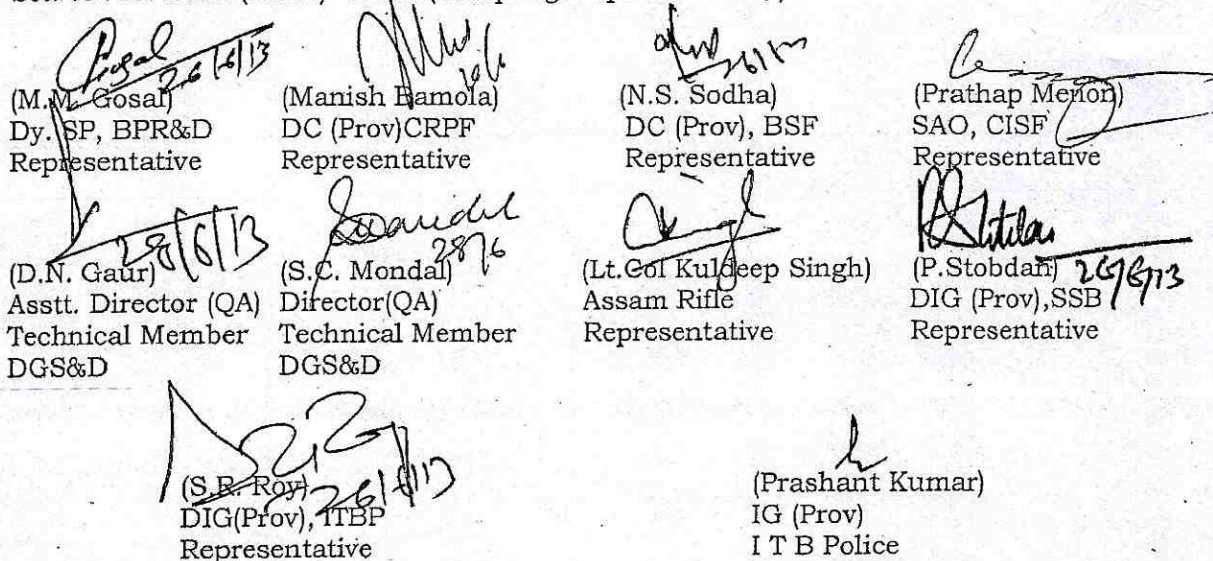 26/6/13
(M.M. Gosal)
Dy. SP, BPR&D
Representative
(Manish Bamola)
DC (Prov)CRPF
Representative
(N.S. Sodha)
DC (Prov), BSF
Representative
(Prathap Menon)
SAO, CISF
Representative
28/6/13
(D.N. Gaur)
Asstt. Director (QA)
Technical Member
DGS&D
28/6
(S.C. Mondal)
Director(QA)
Technical Member
DGS&D
(Lt.Col Kuldeep Singh)
Assam Rifle
Representative
26/6/13
(P.Stobdan)
DIG (Prov),SSB
Representative
(S.R. Roy)
26/6/13
DIG(Prov), ITBP
Representative
(Prashant Kumar)
IG (Prov)
I T B Police